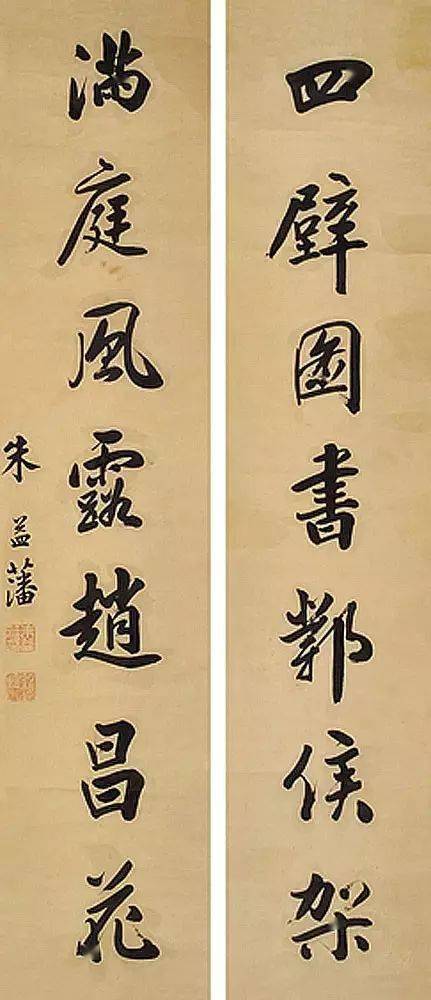 四壁圖書鄴侯架
满庭風露趙昌花
朱益藩